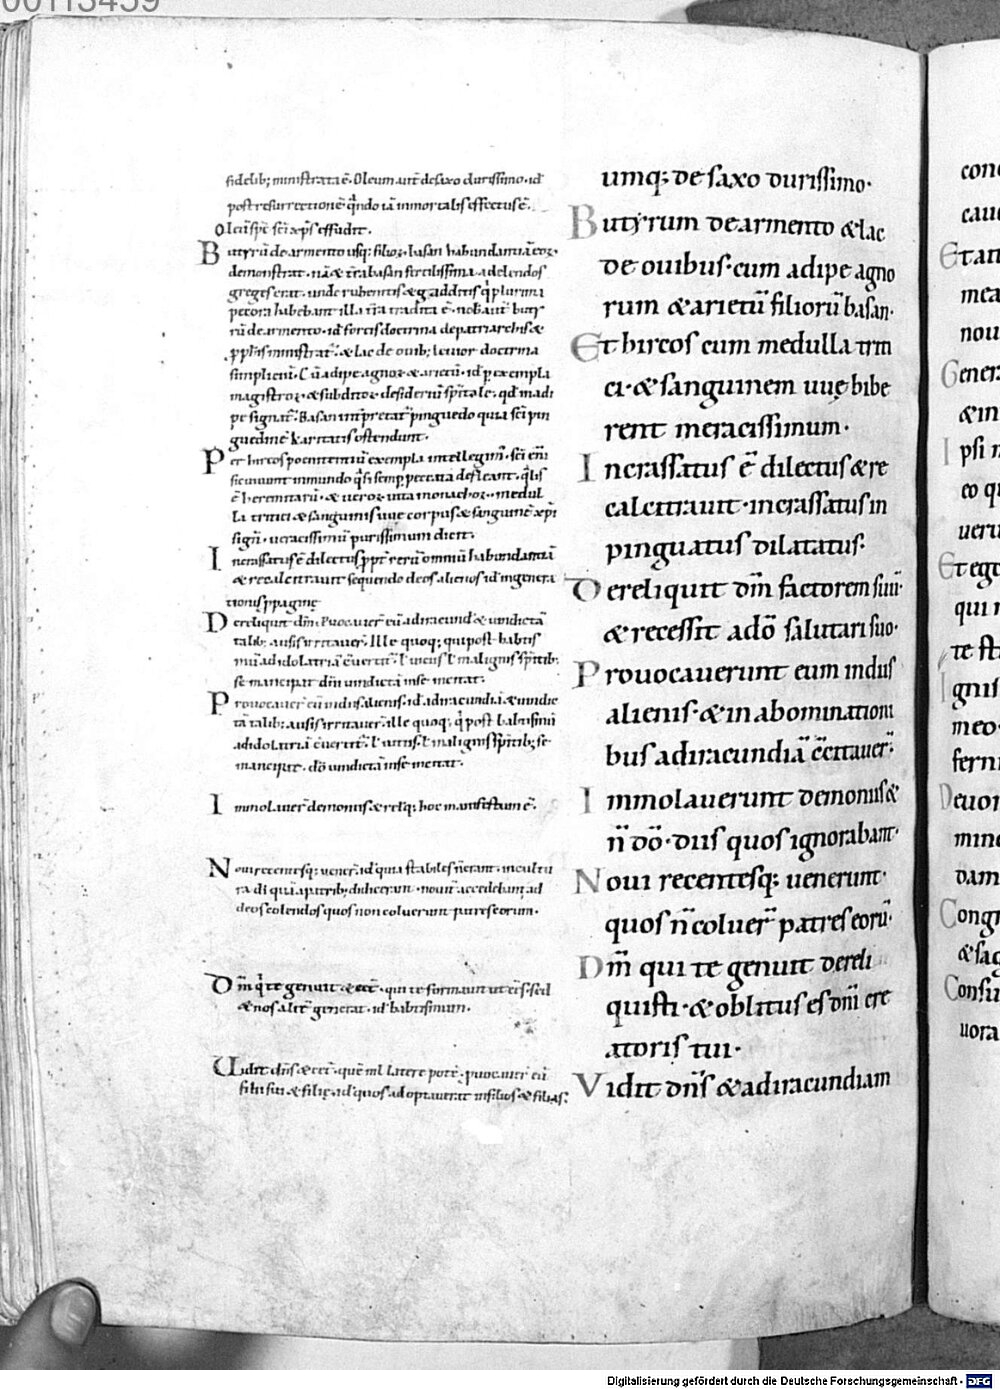 00113459
fidelib; ministrata ē. Oleum aūt de saxo durissimo. id
post resurrectionē qn̄do iā inmortalis effectus ē.
Oleū sp̄c sc̄i xp̄s effudit.
Butyrū de armento usq; filioꝝ basan habundantiā eoꝝ
demonstrat. nā & tr̄a basan fertilissima. adelendos
greges erat. unde rubenitis & gadditis q̄ plurima
pecora habebant illa tr̄a tradita ē. nob̄ aūt butẏ
rū de armento. id fortis doctrina de patriarchis &
ꝓph̄is ministrat̄. & lac de ouib; leuior doctrina
simpliciū. Cū adipe agnoꝝ & arietū. id ꝑ exempla
magistroꝝ & subditoꝝ desideriū sp̄itale. qd̄ in adi
pe signat̄. Basan int̄pretat̄ pinguedo quia sc̄i pin
guedinē karitatis ostendunt.
Per hircos poenitentiū exempla intellegim̄. sc̄i eni
sic uiuunt in mundo q̄si semp̄ peccata defleant. q̄lis
ē heremitarū. & ueroꝝ uita monachoꝝ. medul
la tritici & sanguinis uuę corpus & sanguinē xp̄i
sign̄. ueracissimū purissimum dicit.
Incrassatus ē dilectus ꝓpt̄ rerū omniū habundantiā
& recalcitrauit sequendo deos alienos id in genera
tionis ꝓpagine
Dereliquit dn̄m. Puocauer̄ eū ad iracund̄ & uindictā
talib; ausis irritauer̄. Ille quoq; qui post babtis
mū ad idolatriā c̄uertit̄. l̄ uiciis l̄ malignis sp̄itib;
se mancipat dn̄i uindictā in se incitat.
Prouocauer̄ eū in diis alienis. id. ad iracundiā & uindic
tā talib; ausis irritauer̄. ille quoq; q̄ post babtismū
ad idolatriā c̄uertit̄. l̄ uitiis. l̄ malignis sp̄itib; se
mancipat. dō uindictā in se incitat.
Immolauer̄ demoniis & relq; hoc manifestum ē.
Noui recentesq; uener̄. id quia stabiles n̄ erant. in cultu
ra di quā a patrib; didicerant. nouū accedebant ad
deos colendos quos non coluerunt patres eorum.
Dm̄ q̄ te genuit. & cet̄. qui te formauit ut eēs. sed
& nos alit̄ generat. id babtismum.
Uidit dn̄s & cet̄. quē nil latere potē. puocauer̄ eū
filii sui & filię. id quos adoptauerat in filios & filias;
umq; de saxo durissimo.
Butẏrum de armento & lac
de ouibus. cum adipe agno
rum & arietū filiorū basan.
Et hircos cum medulla triti
ci. & sanguinem uuę bibe
rent meracissimum.
Incrassatus ē dilectus & re
calcitrauit. incrassatus in
pinguatus dilatatus.
Dereliquit dm̄ factorem suū.
& recessit a dō salutari suo.
Prouocauerunt eum in diis
alienis. & in abominationi
bus ad iracundiā c̄citauer̄.
Immolauerunt demoniis &
n̄ dō. diis quos ignorabant.
Noui recentesq; uenerunt.
quos n̄ coluer̄ patres eorū.
Dm̄ qui te genuit dereli
quisti. & oblitus es dn̄i cre
atoris tui.
Vidit dn̄s & ad iracundiam
Digitalisierung gefördert durch die Deutsche Forschungsgemeinschaft - DFG